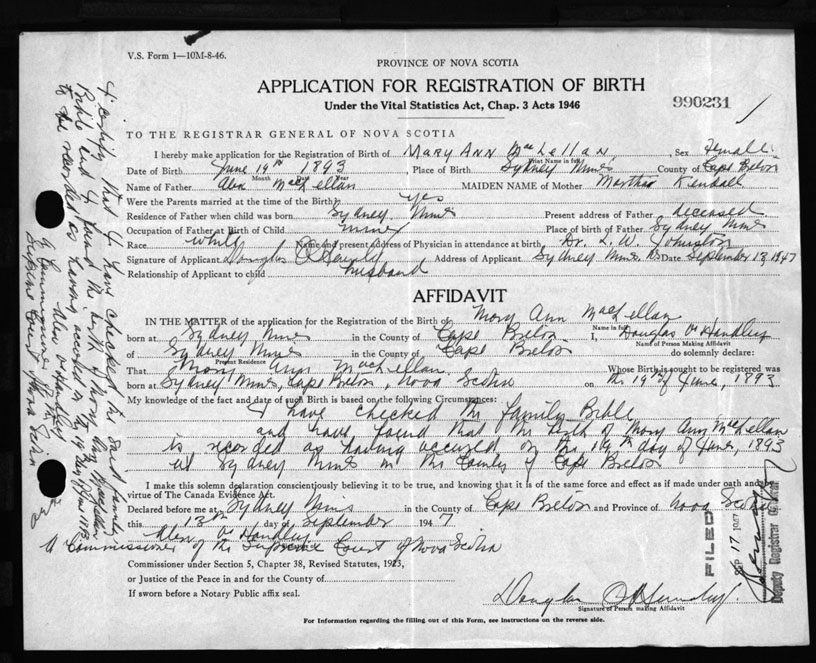 V.S. Form 1—10M-8-46.
PROVINCE OF NOVA SCOTIA
APPLICATION FOR REGISTRATION OF BIRTH
Under the Vital Statistics Act, Chap. 3 Acts 1946
990231
TO THE REGISTRAR GENERAL OF NOVA SCOTIA
I hereby make application for the Registration of Birth of Mary Ann MacLellan, Sex Female
Print Name in full
Date of Birth June 19th 1893, Place of Birth Sydney Mines County of Cape Breton
Month Date Year
Name of Father Alex MacLellan MAIDEN NAME of Mother Martha Kendall
Were the Parents married at time of the Birth? yes
Residence of Father when child was born Sydney Mines Present address of Father deceased
Occupation of Father at Birth of Child miner Place of birth of Father Sydney Mines
Race white Name and present address of Physician in attendance at birth Dr. L. W. Johnston
Signature of Applicant Douglas Address of Applicant Sydney Mines, N.S. Date September 13, 1947
Relationship of Applicant to child husband
AFFIDAVIT
IN THE MATTER of the application for the Registration of Birth of Mary Ann MacLellan
Name in full
born at Sydney Mines in the County of Cape Breton I, Douglas O'Handley
Name of Person Making Affidavit
of Sydney Mines in the County of Cape Breton do solemnly declare:
Present Residence
That Mary Ann MacLellan Whose Birth is sought to be registered was
born at Sydney Mines, Cape Breton, Nova Scotia on the 19th of June, 1893
My knowledge of the fact and date of such Birth is based on the following Circumstances:
I have checked the family Bible
and have found that the birth of Mary Ann MacLellan
is recorded as having occured on the 19th day of June, 1893
at Sydney Mines in the County of Cape Breton
I make this solemn declaration conscientiously believing it to be true, and knowing that it is of the same force and effect as if made under oath and by
virtue of The Canada Evidence Act.
Declared before me at Sydney Mines in the County of Cape Breton and Province of Nova Scotia
this 13th day of September 1947
Alex O'Handley
A Commissioner of the Supreme Court of Nova Scotia
Commissioner under Section 5, Chapter 38, Revised Statutes, 1923,
or Justice of the Peace in and for the County of
If sworn before a Notary Public affix seal.
Douglas O'Handley
Signature of Person making Affidavit
For Information regarding the filling out of this Form, see instructions on the reverse side.
I certify that I have checked the said family
Bible and I found the birth of Mary Ann MacLellan
to be recorded as having occured on the 19 day of June 1893
Alex O'Handley
A Commissioner of the
Supreme Court of Nova Scotia
FILED
SEP 17 1947
Deputy Registrar General